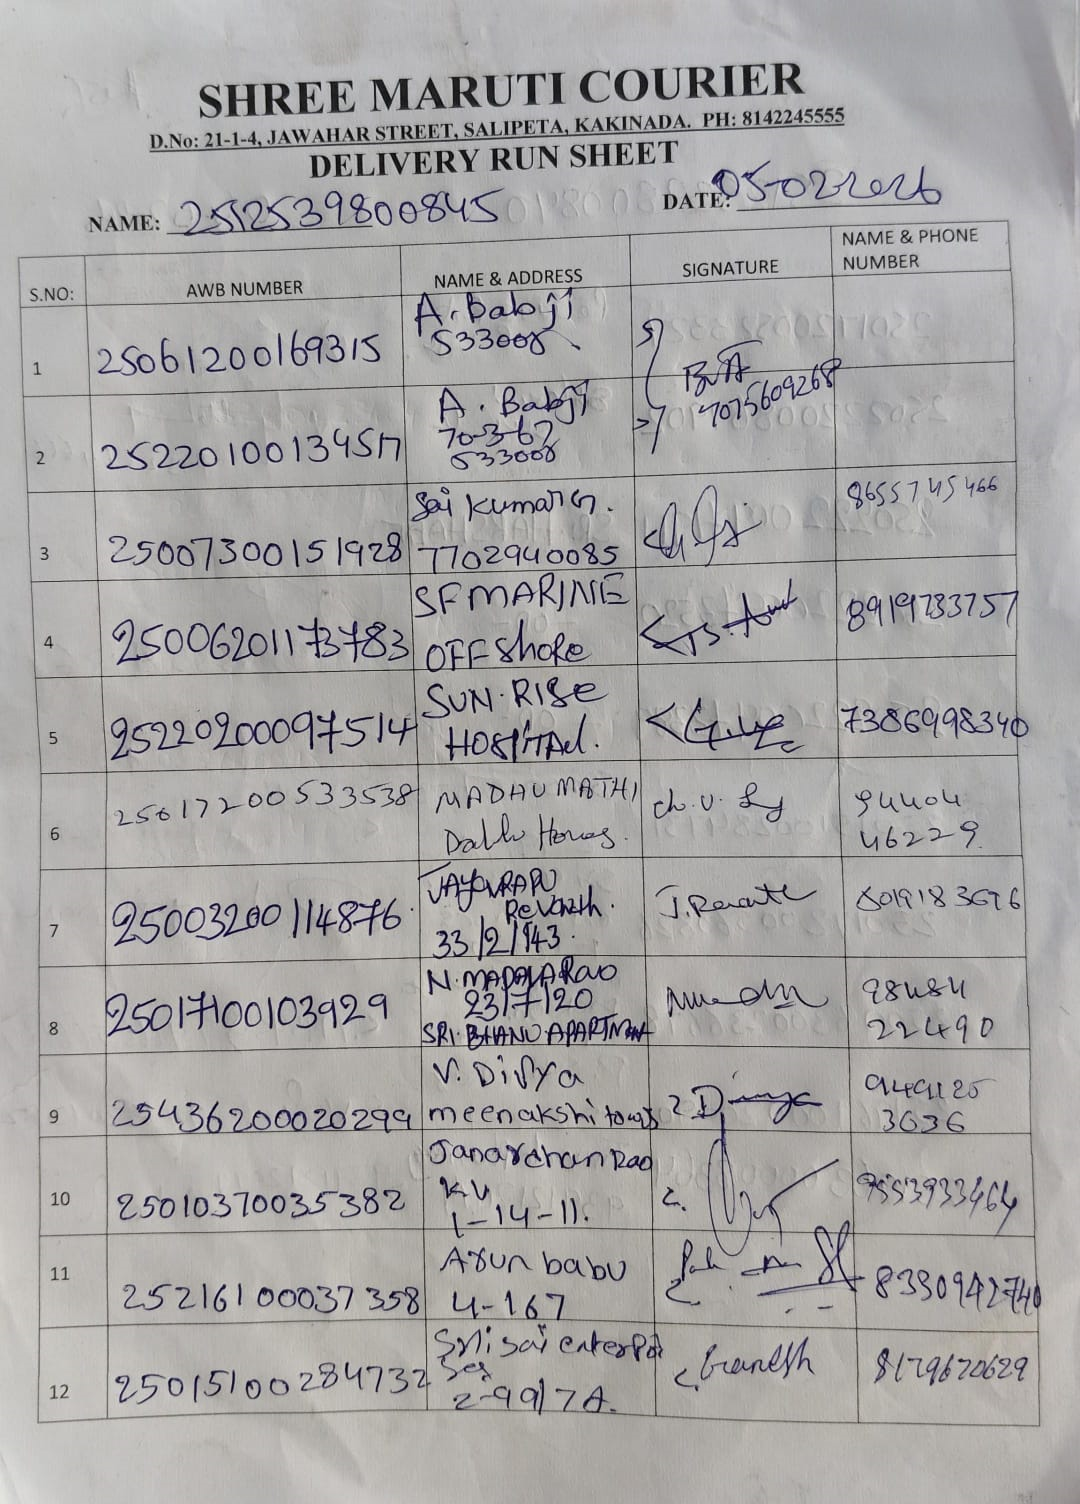 SHREE MARUTI COURIER
D.No: 21-1-4, JAWAHAR STREET, SALIPETA, KAKINADA. PH: 8142245555
DELIVERY RUN SHEET
NAME: 2512539800845 DATE: 05-02-2026
S.NO: AWB NUMBER NAME & ADDRESS SIGNATURE NAME & PHONE NUMBER
1 25061200169315 A. Babji
533008
7075609268
2 25220100134517 A. Babji
70-3-67
533008
3 25007300151928 Sai Kumar G.
7702940085
8655745466
4 25006201173783 SF MARINE
OFF Shore
8919783757
5 25220200097514 SUN-RISE
HOSPITAL.
7386998340
6 250172200533538 MADHU MATHI
94404
46229
7 25003200114876 Revanth.
33/2/143
J. Revanth
8019183676
8 25017100103929 N. Rao
23/7/20
SRI. BHANU APARTMENT
98484
22490
9 25436200020299 V. Divya
meenakshi
Divya
949125
3636
10 25010370035382 Janardhan Rao
K.V
1-14-11.
9553933464
11 25216100037358 Arun babu
4-167
8330942740
12 25015100284732 Sri sai enterpri
ses
2-99/7A.
Ganesh
8179670629